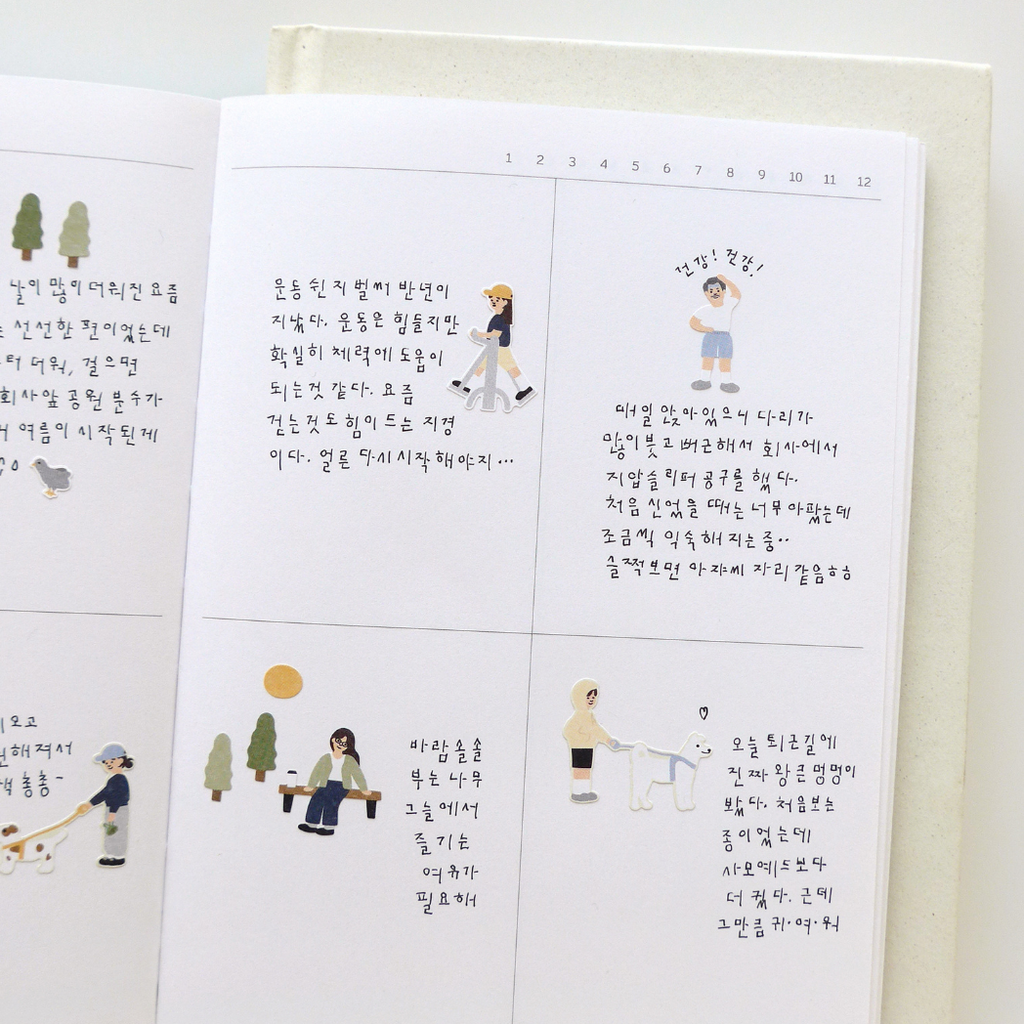 날이 많이 더워진 요즘
선선한 편이었는데
더워, 걸으면
회사앞 공원 분수가
여름이 시작된게
오고
해져서
총총~
1 2 3 4 5 6 7 8 9 10 11 12
운동 쉰 지 벌써 반년이
지났다. 운동은 힘들지만
확실히 체력에 도움이
되는것 같다. 요즘
걷는것도 힘이 드는 지경
이다. 얼른 다시 시작해야지...
건강! 건강!
매일 앉아있으니 다리가
많이 붓고 뻐근해서 회사에서
지압슬리퍼 공구를 했다.
처음 신었을 때는 너무 아팠는데
조금씩 익숙해 지는 중..
슬쩍보면 아재씨 자리 같음ㅎㅎ
바람 솔솔
부는 나무
그늘에서
즐기는
여유가
필요해
오늘 퇴근길에
진짜 왕큰 멍멍이
봤다. 처음보는
종이었는데
사모예드보다
더 컸다. 근데
그만큼 귀·여·워